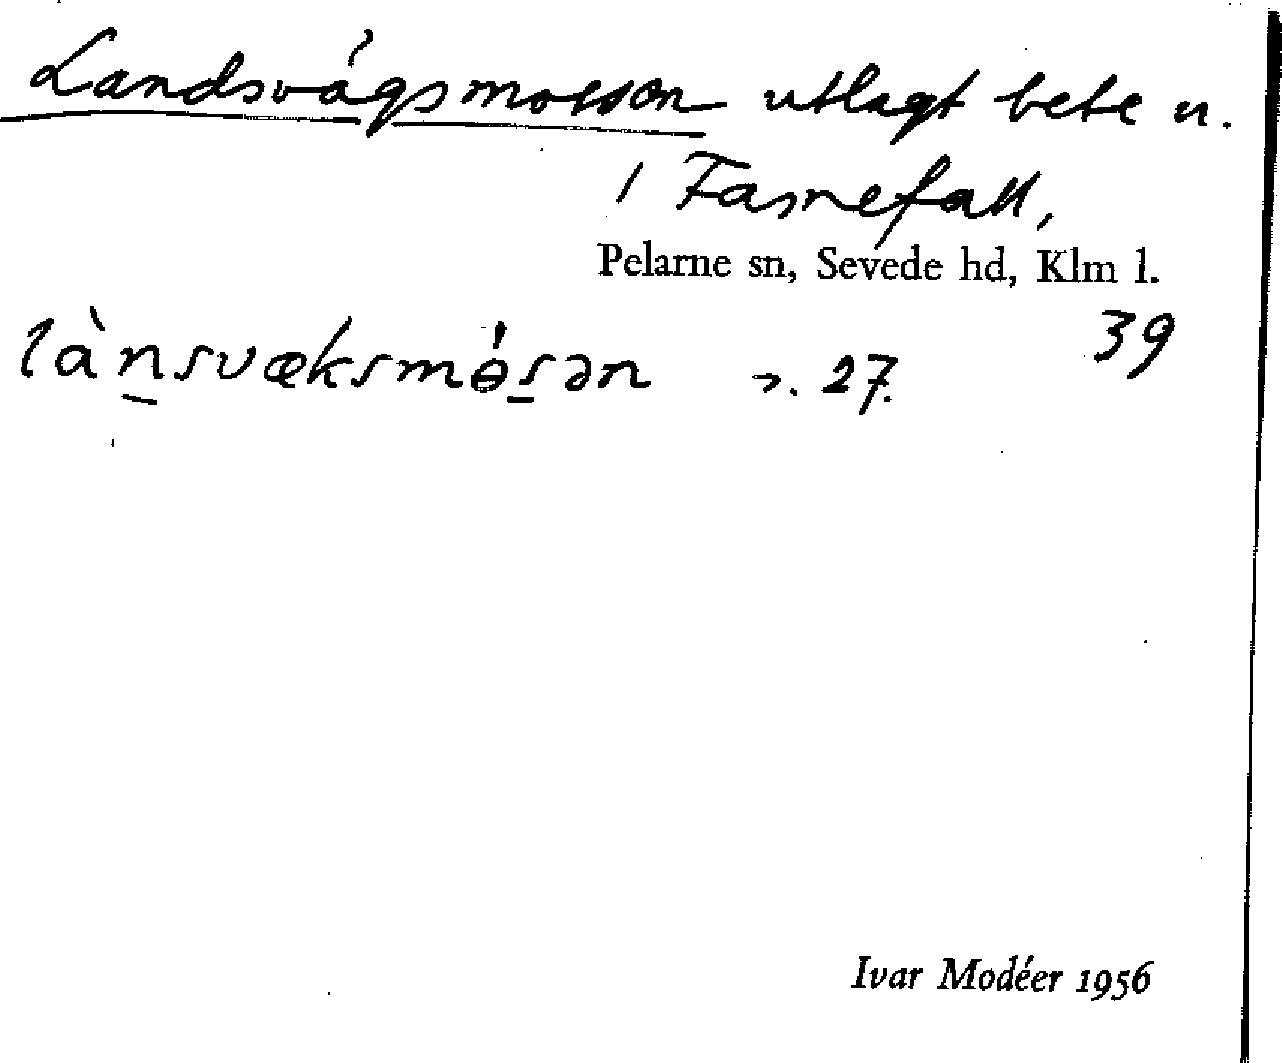 Landsvägsmossen utlagt bete n.
1 Fasnefall,
Pelarne sn, Sevede hd, Klm l.
39
lànsvæksmɵ́sən n. 27.
Ivar Modéer 1956